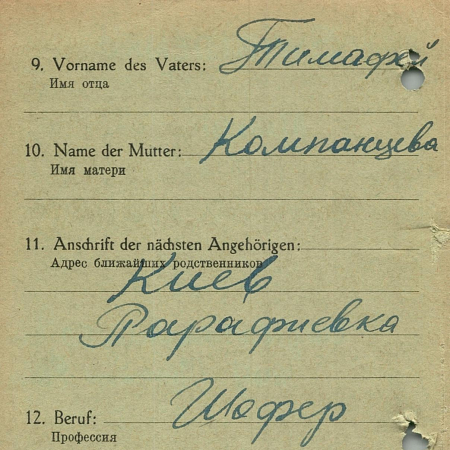 9. Vorname des Vaters: Тимафей
Имя отца
10. Name der Mutter: Компанцева
Имя матери
11. Anschrift der nächsten Angehörigen:
Адрес ближайших родственников
Киев
Парафиевка
12. Beruf: Шофер
Профессия